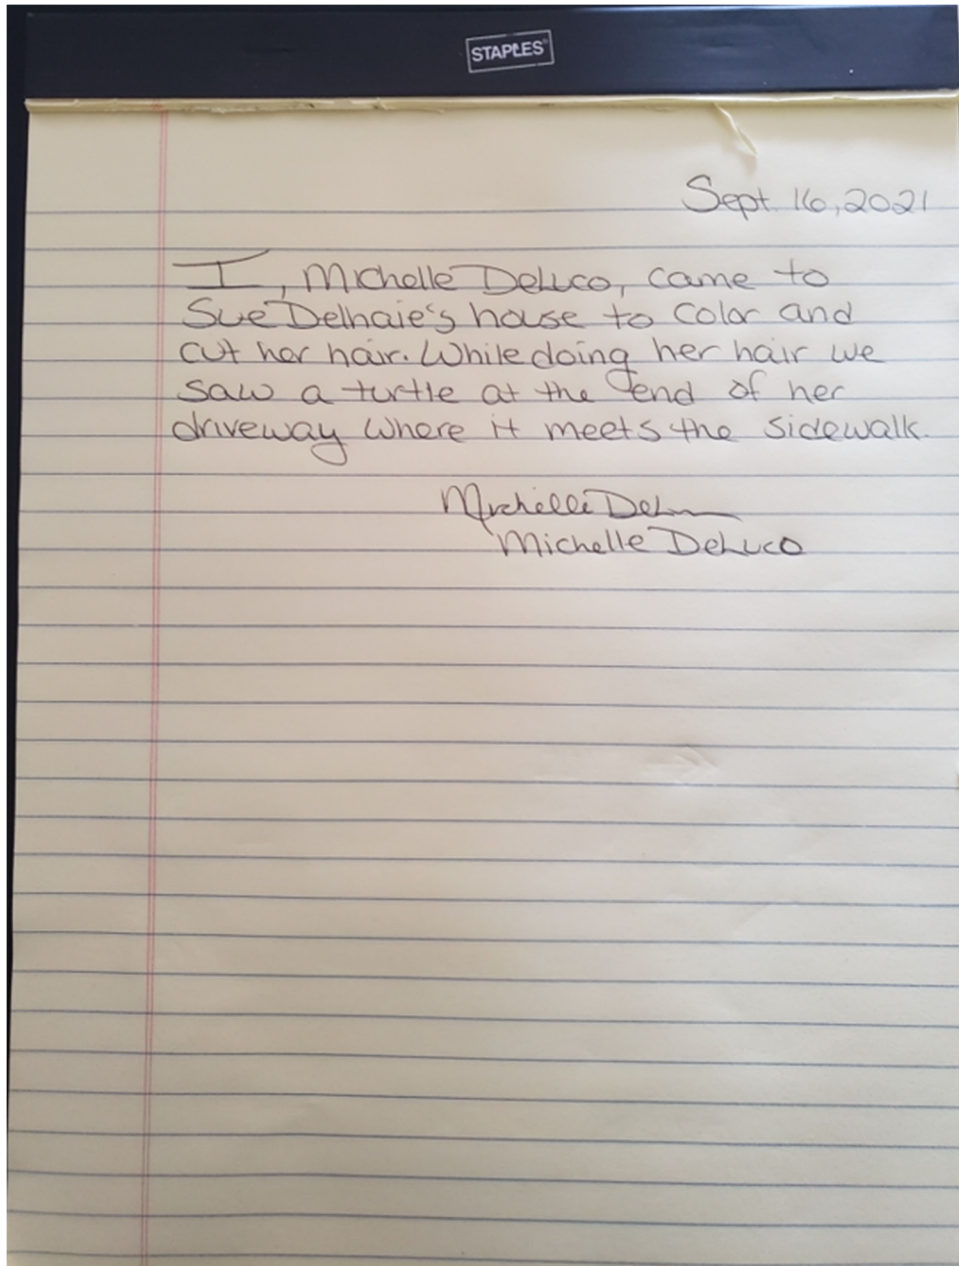 STAPLES
Sept. 16, 2021
I, Michelle DeLuco, came to
Sue Delhaie's house to color and
cut her hair. While doing her hair we
saw a turtle at the end of her
driveway where it meets the sidewalk.
Michelle DeL
Michelle DeLuco